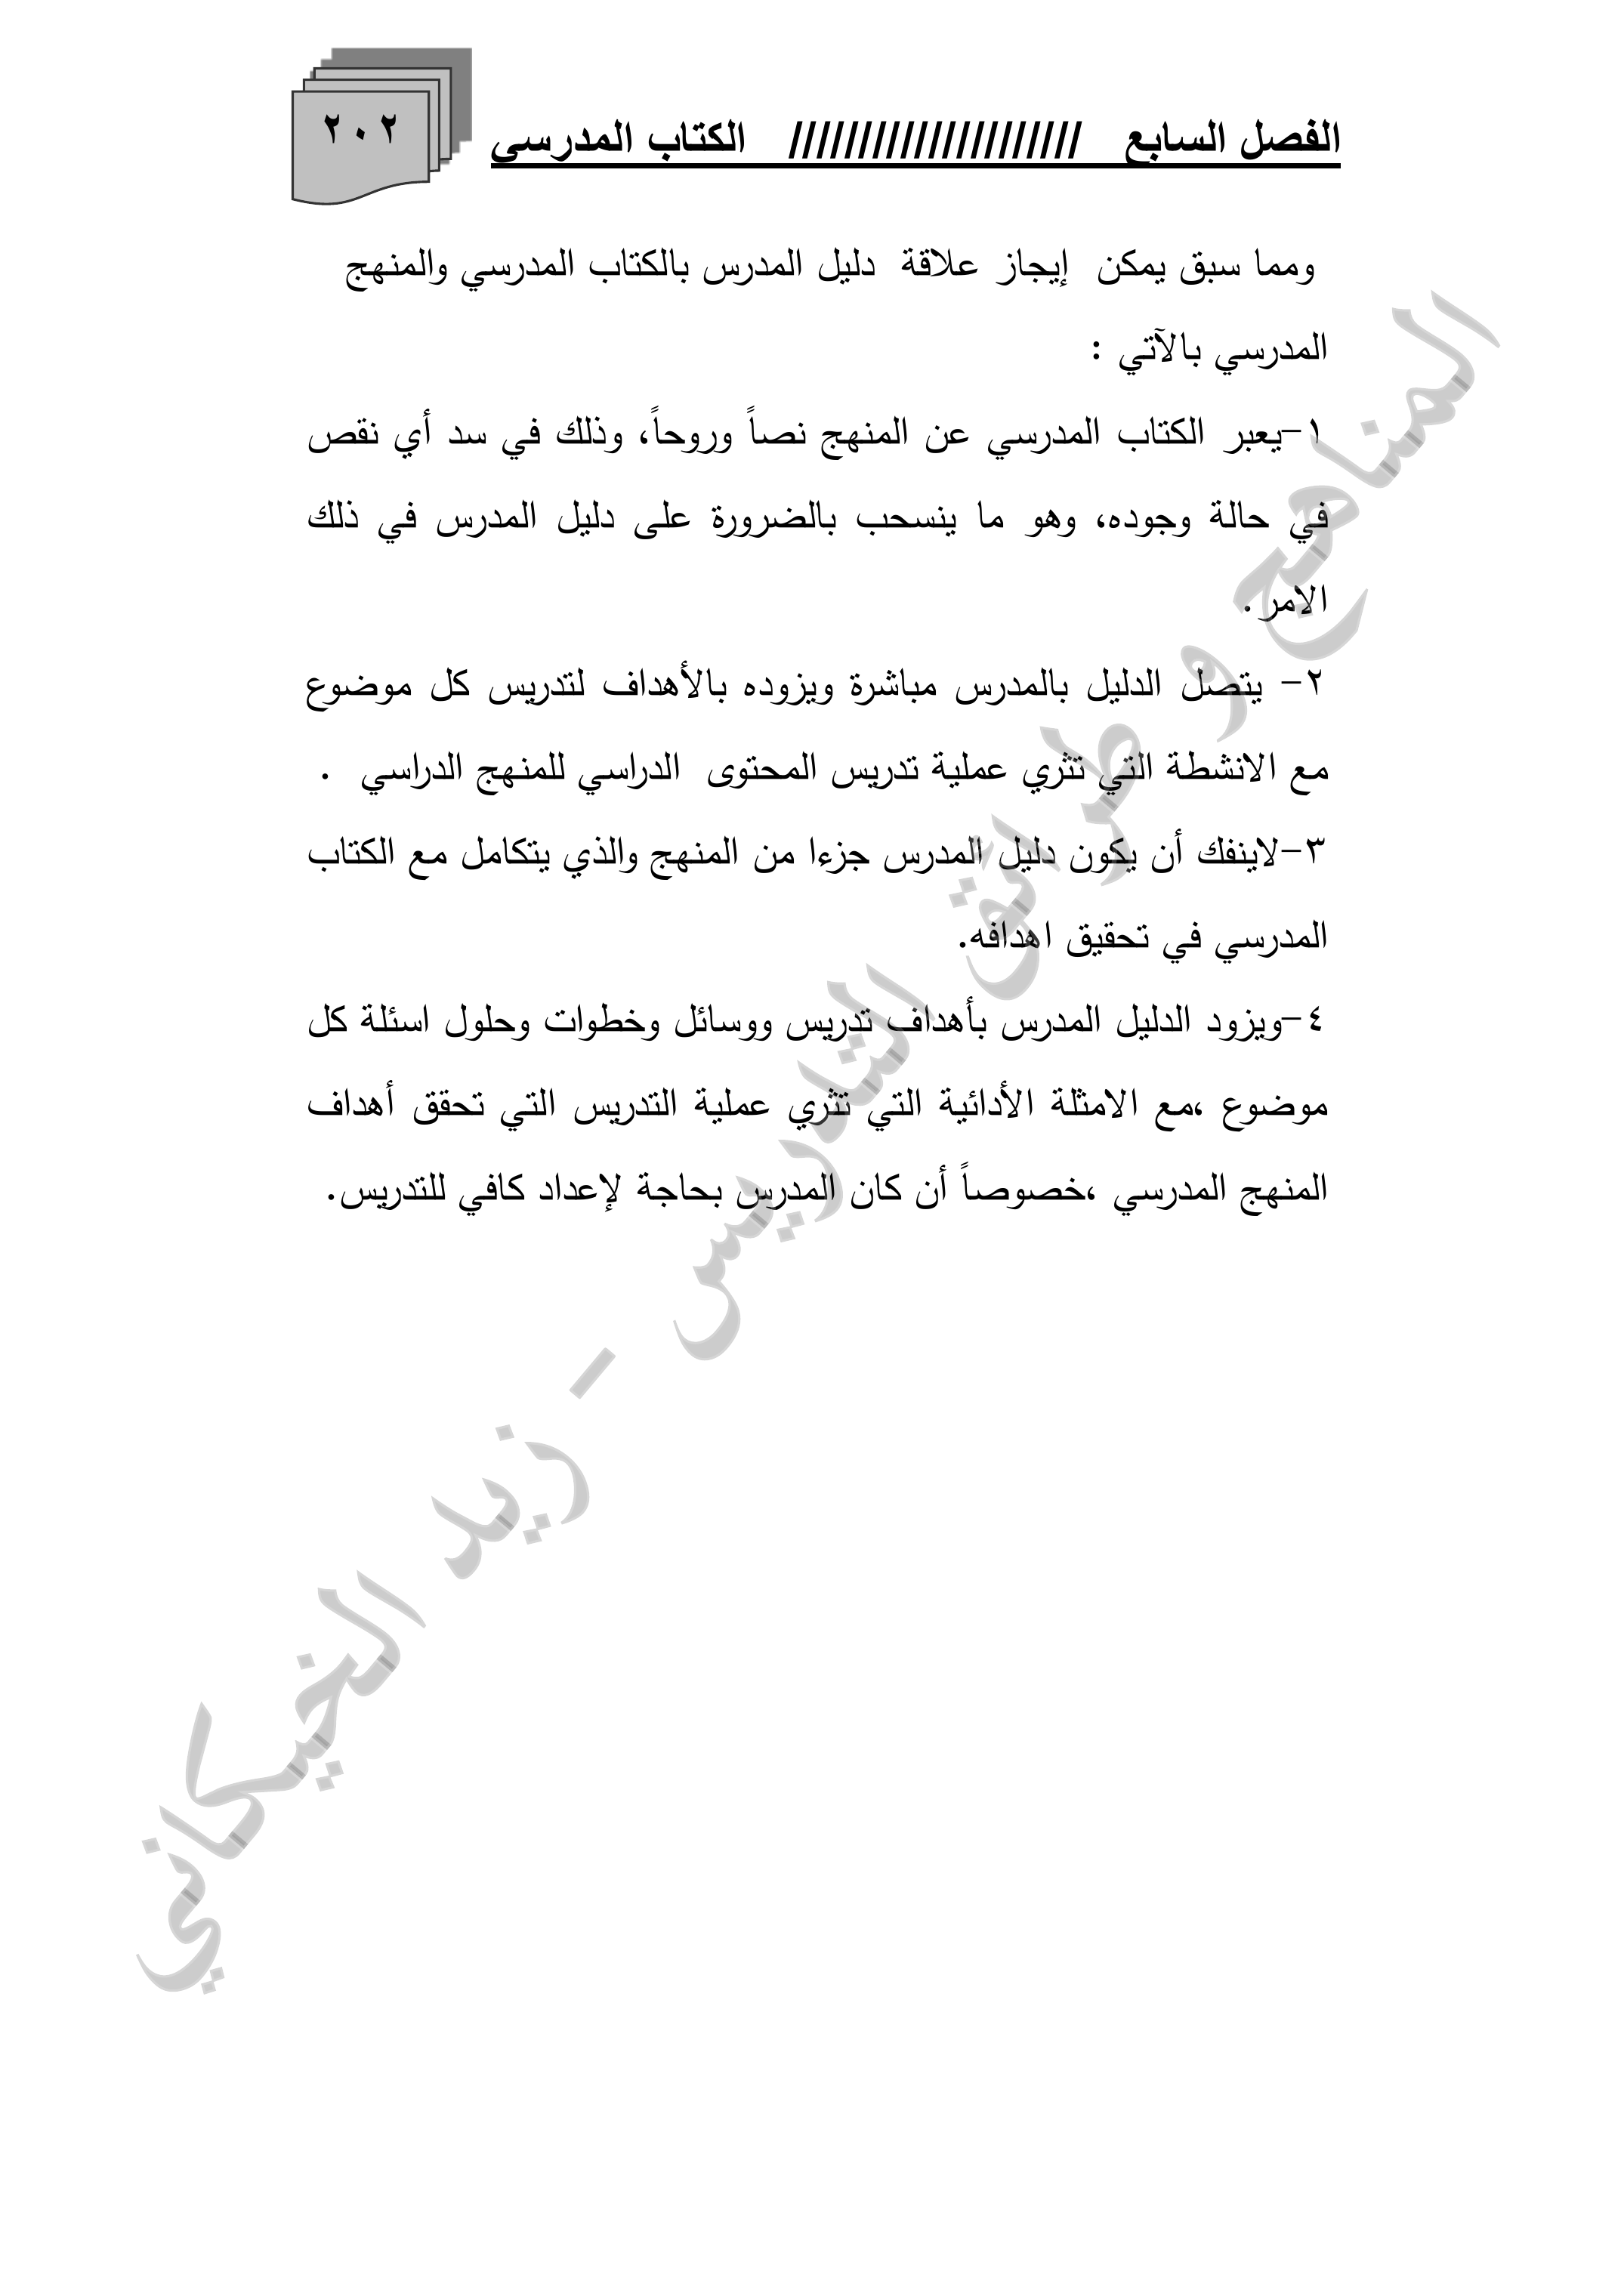 الفصل السابع ///////////////////// الكتاب المدرسي
٢٠٢
ومما سبق يمكن إيجاز علاقة دليل المدرس بالكتاب المدرسي والمنهج
المدرسي بالآتي :
١-يعبر الكتاب المدرسي عن المنهج نصاً وروحاً، وذلك في سد أي نقص
في حالة وجوده، وهو ما ينسحب بالضرورة على دليل المدرس في ذلك
الامر.
٢- يتصل الدليل بالمدرس مباشرة ويزوده بالأهداف لتدريس كل موضوع
مع الانشطة التي تثري عملية تدريس المحتوى الدراسي للمنهج الدراسي .
٣-لاينفك أن يكون دليل المدرس جزءا من المنهج والذي يتكامل مع الكتاب
المدرسي في تحقيق اهدافه.
٤-ويزود الدليل المدرس بأهداف تدريس ووسائل وخطوات وحلول اسئلة كل
موضوع ،مع الامثلة الأدائية التي تثري عملية التدريس التي تحقق أهداف
المنهج المدرسي ،خصوصاً أن كان المدرس بحاجة لإعداد كافي للتدريس.
المناهج و طرائق التدريس - زيد الخيكاني